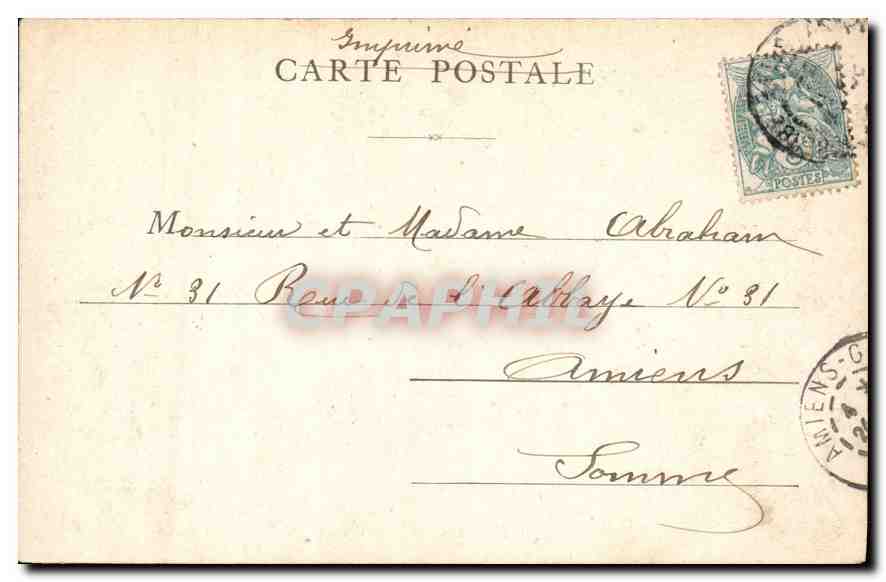 Imprimé
CARTE POSTALE
POSTES
Monsieur et Madame Abraham
No 31 Rue de l'Abbaye No 31
CPAPHIL
Amiens
AMIENS-G
Somme